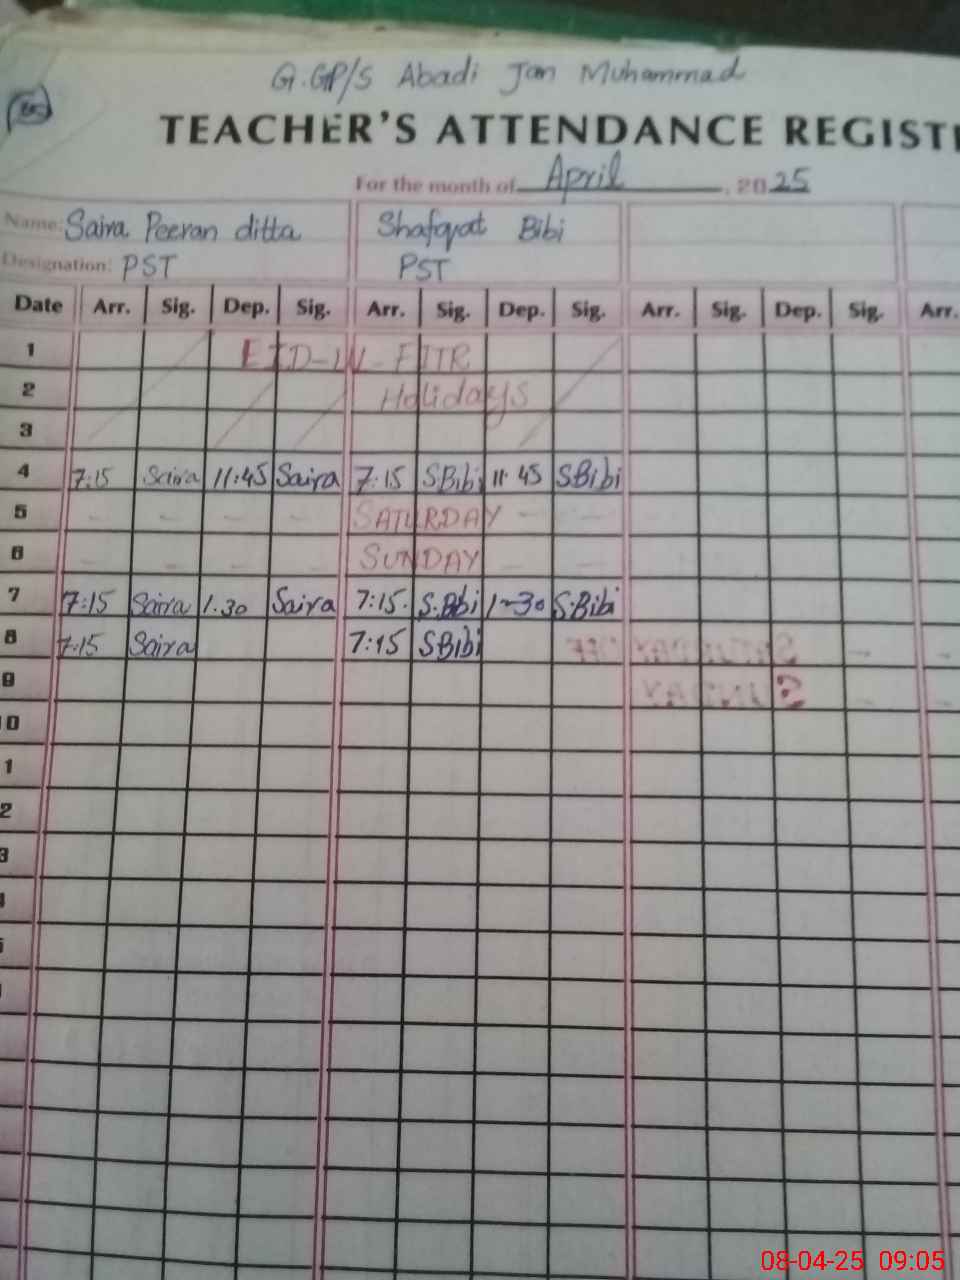 G.GP/S Abadi Jan Muhammad
TEACHER'S ATTENDANCE REGIST
For the month of April, 2025
Name: Saira Peeran ditta Shafqat Bibi
Designation: PST PST
Date Arr. Sig. Dep. Sig. Arr. Sig. Dep. Sig. Arr. Sig. Dep. Sig. Arr.
1 EID-UL-FITR
2 Holidays
3
4 7:15 Saira 11:45 Saira 7:15 SBibi 11:45 SBibi
5 - - - - SATURDAY - -
6 - - - - SUNDAY - -
7 7:15 Saira 1.30 Saira 7:15. S.Bibi 1-30 S.Bibi
8 7:15 Saira 7:15 SBibi
9
10
1
2
3
08-04-25 09:05